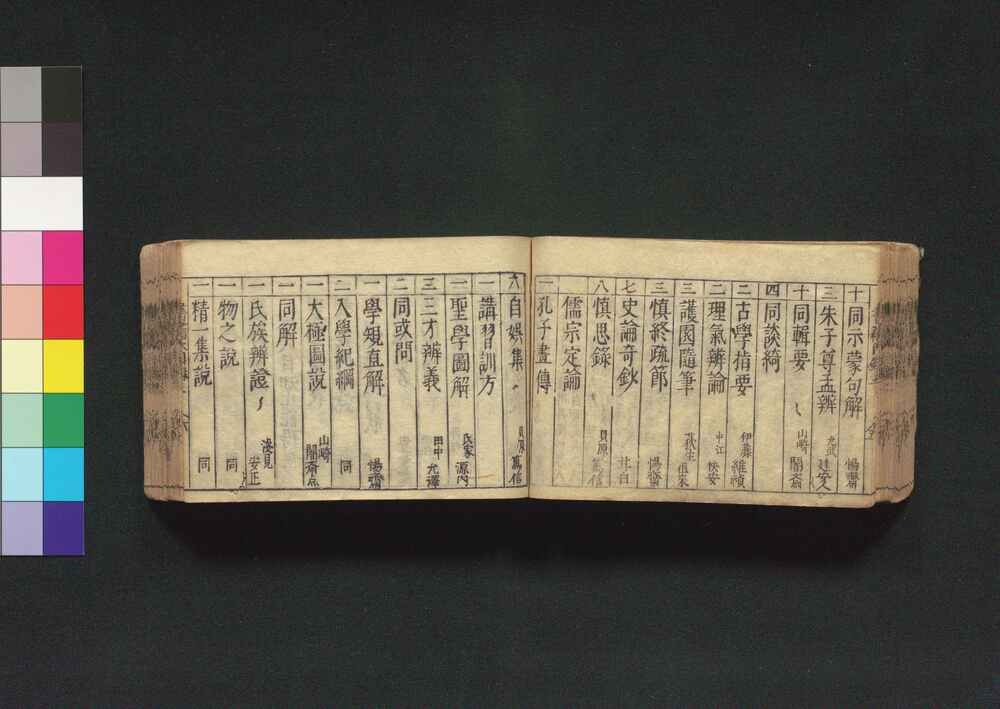 十 同示蒙句解 惕齋
三 朱子尊孟辨
十 同輯要 山崎 闇齋
四 同談綺
二 古學指要 伊藤 維禎
二 理氣辨論 中江
三 護園隨筆 荻生 徂來
三 慎終疏節 惕齋
七 史論奇鈔
八 慎思錄 貝原 篤信
儒宗定論
一 孔子畫傳
六 自娯集 貝原 篤信
一 講習訓方
一 聖學圖解 氏家 源内
三 三才辨義 田中 允澤
二 同或問
一 學規直解 惕齋
二 入學紀綱 同
一 大極圖說 山崎 闇齋点
一 同解
一 氏族辨證 淺見 安正
一 物之說 同
一 精一集說 同